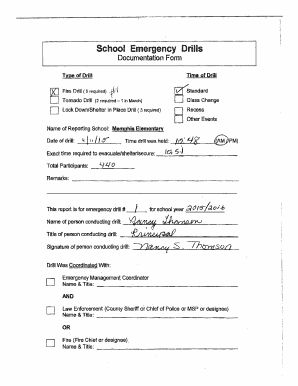 School Emergency Drills
Documentation Form
Type of Drill Time of Drill
Fire Drill (5 required) #1 Standard
Tornado Drill (2 required – 1 in March) Class Change
Lock Down/Shelter in Place Drill (3 required) Recess
Other Events
Name of Reporting School: Memphis Elementary
Date of drill: Time drill was held: 10:48 (AM/PM)
Exact time required to evacuate/shelter/secure: 1051
Total Participants: 440
Remarks:
This report is for emergency drill # 1 for school year 2015/2016
Name of person conducting drill: Nancy Thomson
Title of person conducting drill: Principal
Signature of person conducting drill: Nancy S. Thomson
Drill Was Coordinated With:
Emergency Management Coordinator
Name & Title:
AND
Law Enforcement (County Sheriff or Chief of Police or MSP or designee)
Name & Title:
OR
Fire (Fire Chief or designee)
Name & Title: